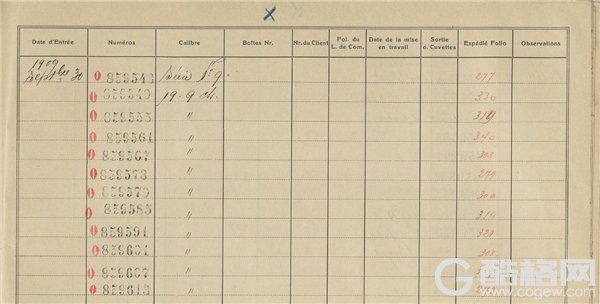 Date d'Entrée Numéros Calibre Boîtes Nr. Nr. du Client Fol. du L. de Com. Date de la mise en travail Sortie d. Cuvettes Expédié Folio Observations
1909
Septbre 30 0 859543 277
0 859549 19.9 330
0 859555 "
0 859561 " 340
0 859567 " 303
0 859573 " 279
0 859579 " 300
0 859585 " 314
0 859591 " 328
0 859601 "
0 859607 "
0 859613 "
G 酷格网
www.cogew.com